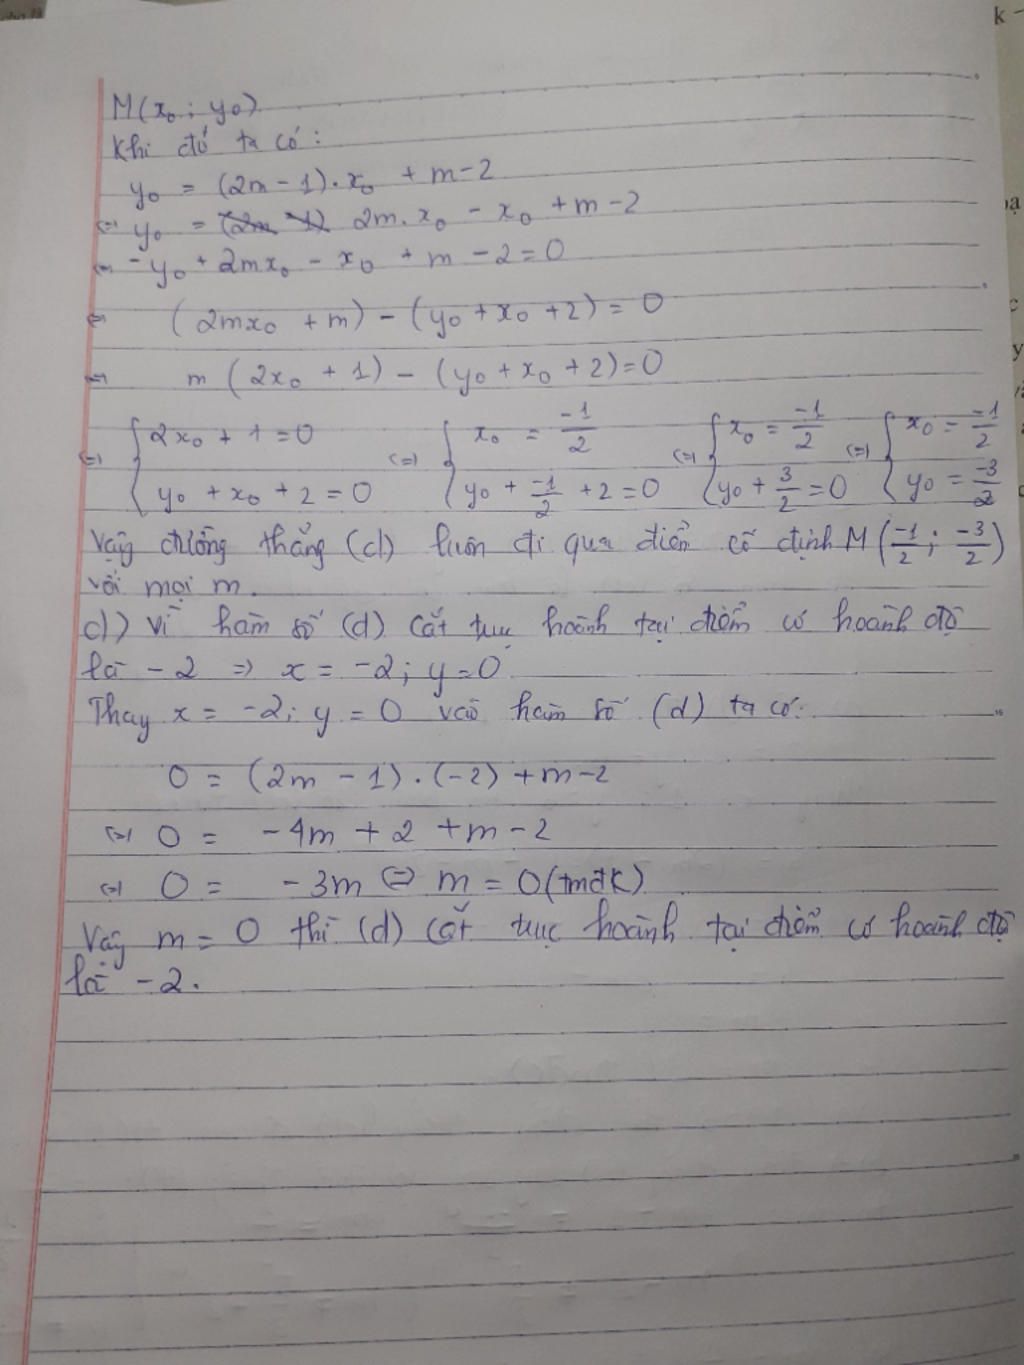 M(x₀; y₀)
Khi đó ta có:
y₀ = (2m - 1).x₀ + m-2
⇔ y₀ = 2m.x₀ - x₀ + m - 2
⇔ -y₀ + 2mx₀ - x₀ + m - 2 = 0
⇔ (2mx₀ + m) - (y₀ + x₀ + 2) = 0
⇔ m (2x₀ + 1) - (y₀ + x₀ + 2) = 0
⇔ { 2x₀ + 1 = 0 ; y₀ + x₀ + 2 = 0 ⇔ { x₀ = -1/2 ; y₀ + -1/2 + 2 = 0 ⇔ { x₀ = -1/2 ; y₀ + 3/2 = 0 ⇔ { x₀ = -1/2 ; y₀ = -3/2
Vậy đường thẳng (d) luôn đi qua điểm cố định M (-1/2; -3/2)
với mọi m.
d) Vì hàm số (d) cắt trục hoành tại điểm có hoành độ
là -2 ⇒ x = -2; y = 0
Thay x = -2; y = 0 vào hàm số (d) ta có:
0 = (2m - 1).(-2) + m-2
⇔ 0 = -4m + 2 + m - 2
⇔ 0 = -3m ⇔ m = 0 (tmđk)
Vậy m = 0 thì (d) cắt trục hoành tại điểm có hoành độ
là -2.
k -